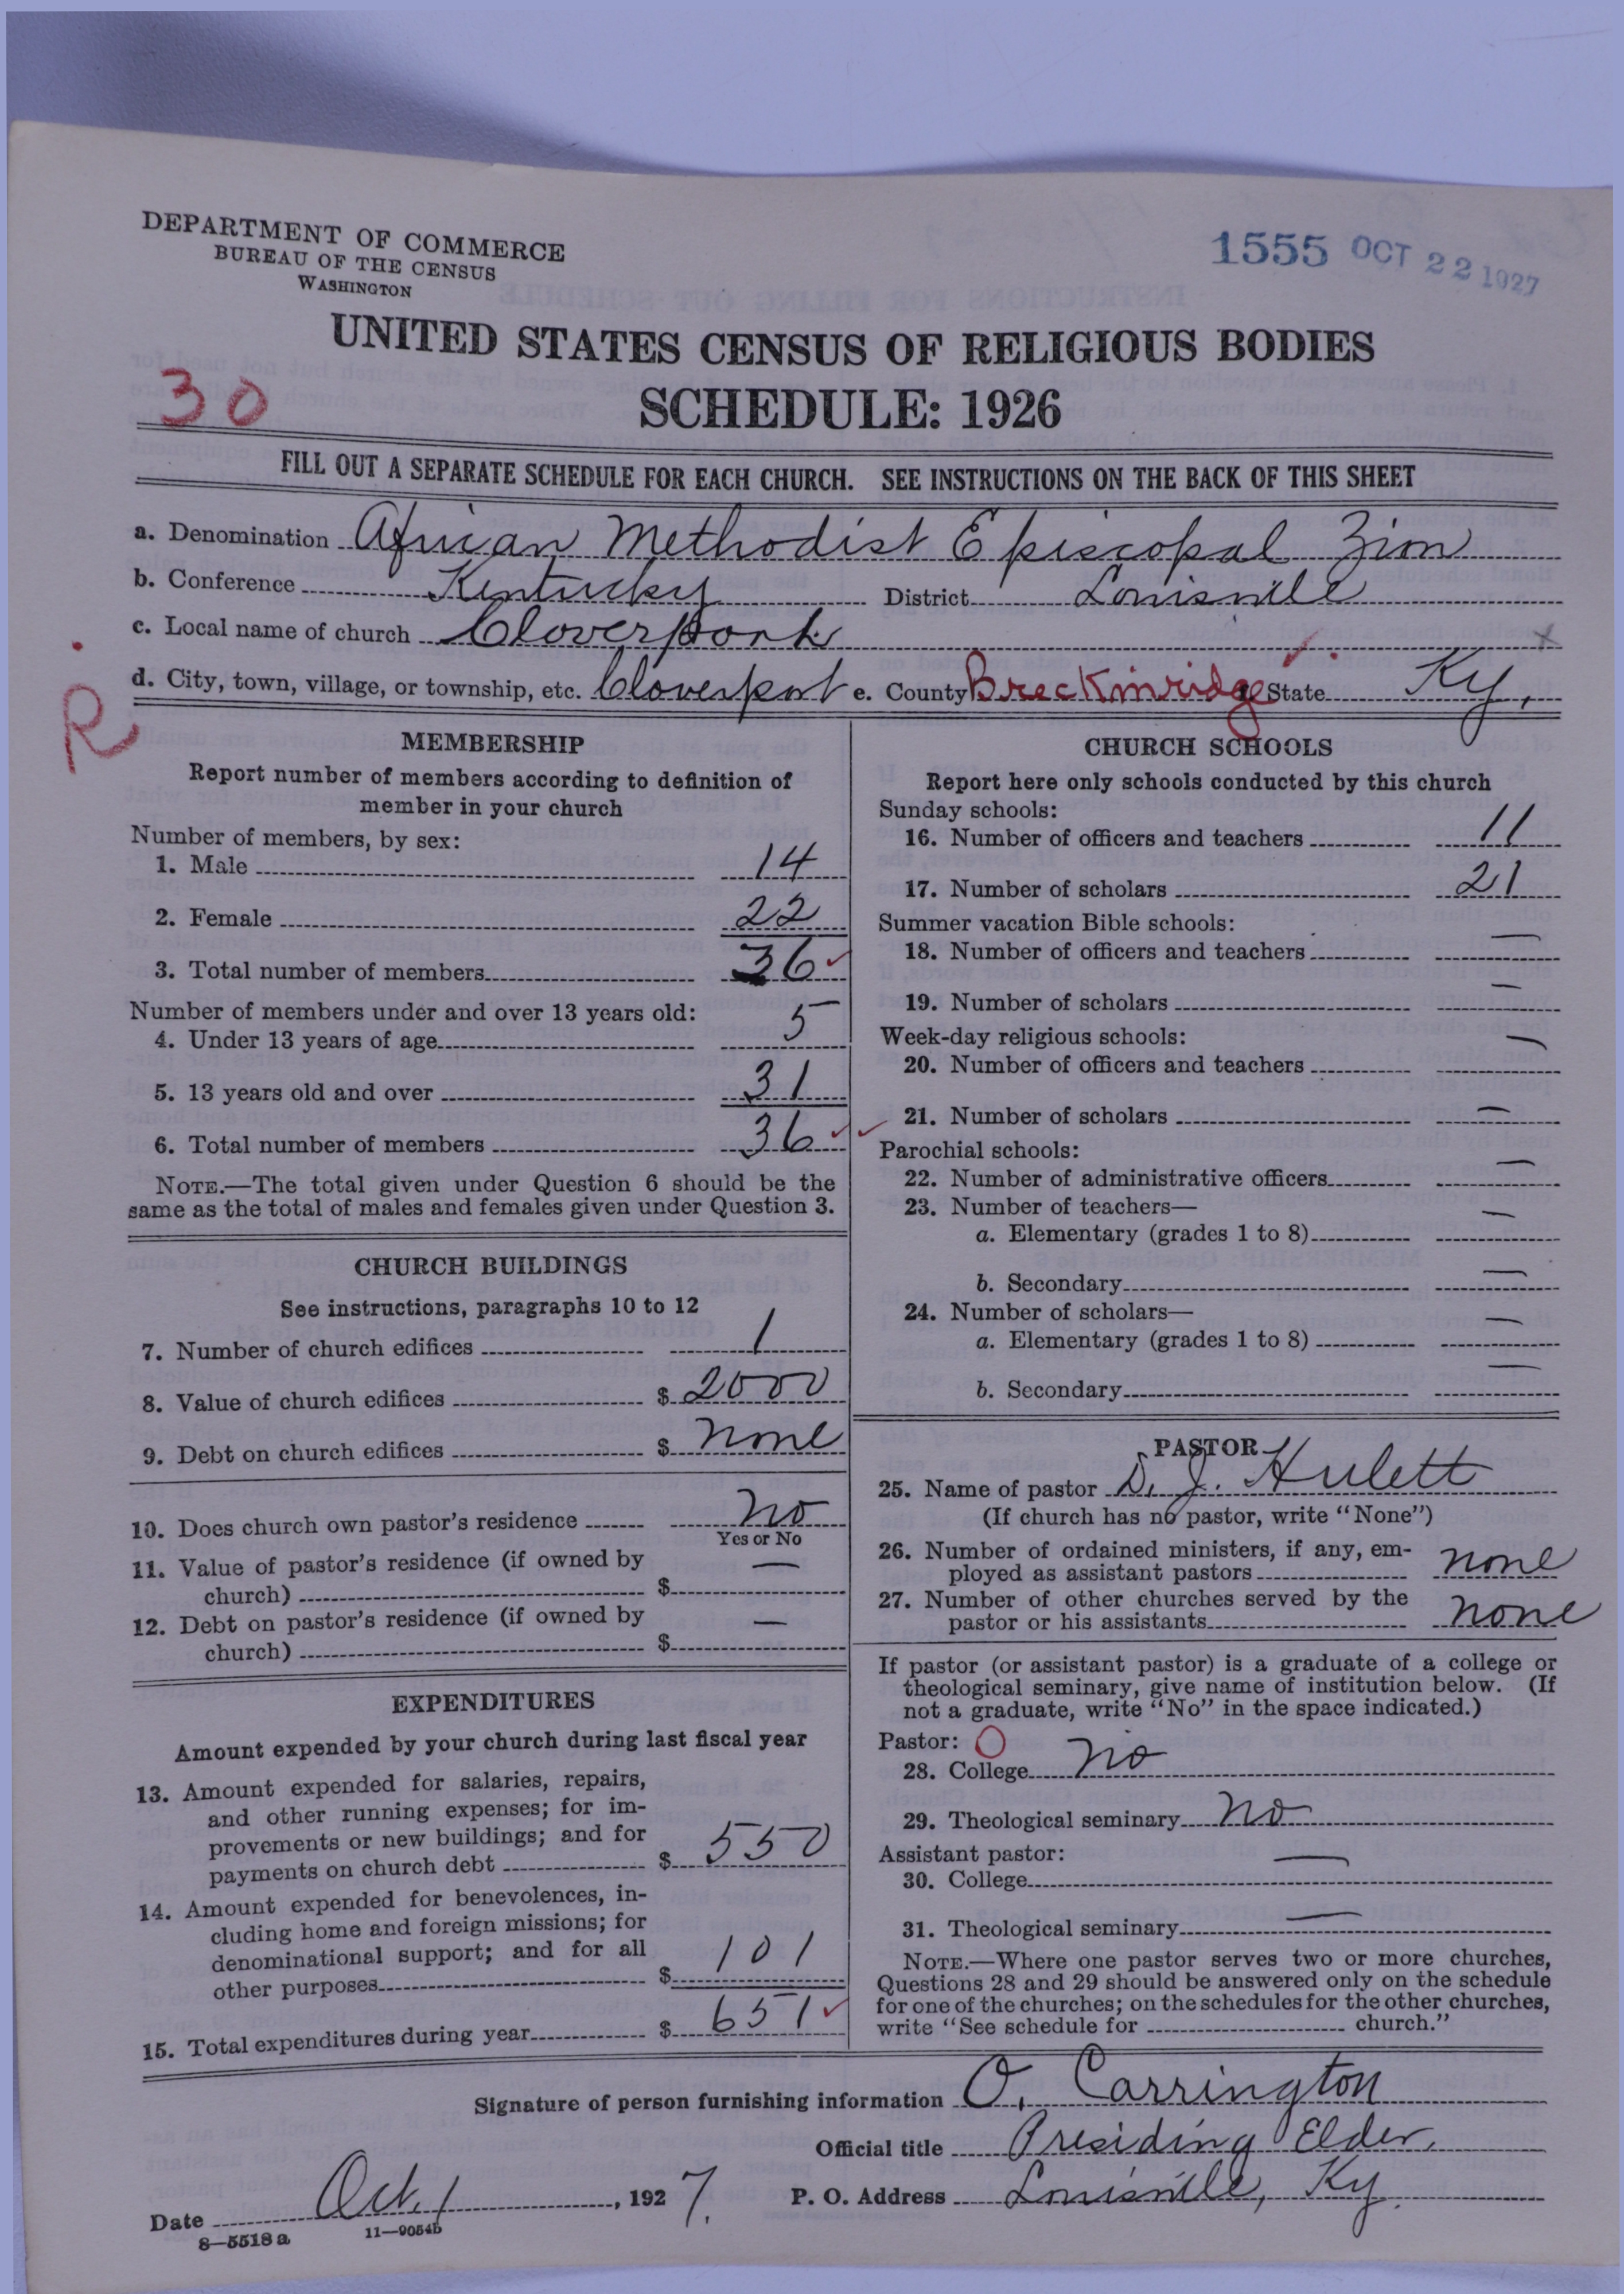 DEPARTMENT OF COMMERCE
BUREAU OF THE CENSUS
WASHINGTON
1555 OCT 22 1927
UNITED STATES CENSUS OF RELIGIOUS BODIES
SCHEDULE: 1926
30
FILL OUT A SEPARATE SCHEDULE FOR EACH CHURCH. SEE INSTRUCTIONS ON THE BACK OF THIS SHEET
a. Denomination African Methodist Episcopal Zion
b. Conference Kentucky District Louisville
c. Local name of church Cloverport
d. City, town, village, or township, etc. Cloverport e. County Breckinridge State Ky.
R
MEMBERSHIP
Report number of members according to definition of
member in your church
Number of members, by sex:
1. Male 14
2. Female 22
3. Total number of members 36
Number of members under and over 13 years old:
4. Under 13 years of age 5
5. 13 years old and over 31
6. Total number of members 36
NOTE.—The total given under Question 6 should be the
same as the total of males and females given under Question 3.
CHURCH BUILDINGS
See instructions, paragraphs 10 to 12
7. Number of church edifices 1
8. Value of church edifices $ 2000
9. Debt on church edifices $ none
10. Does church own pastor's residence no
Yes or No
11. Value of pastor's residence (if owned by
church) $ —
12. Debt on pastor's residence (if owned by
church) $ —
EXPENDITURES
Amount expended by your church during last fiscal year
13. Amount expended for salaries, repairs,
and other running expenses; for im-
provements or new buildings; and for
payments on church debt $ 550
14. Amount expended for benevolences, in-
cluding home and foreign missions; for
denominational support; and for all
other purposes $ 101
15. Total expenditures during year $ 651
CHURCH SCHOOLS
Report here only schools conducted by this church
Sunday schools:
16. Number of officers and teachers 11
17. Number of scholars 21
Summer vacation Bible schools:
18. Number of officers and teachers —
19. Number of scholars —
Week-day religious schools:
20. Number of officers and teachers —
21. Number of scholars —
Parochial schools:
22. Number of administrative officers —
23. Number of teachers—
a. Elementary (grades 1 to 8) —
b. Secondary —
24. Number of scholars—
a. Elementary (grades 1 to 8) —
b. Secondary —
PASTOR
25. Name of pastor D. J. Hulett
(If church has no pastor, write "None")
26. Number of ordained ministers, if any, em-
ployed as assistant pastors none
27. Number of other churches served by the
pastor or his assistants none
If pastor (or assistant pastor) is a graduate of a college or
theological seminary, give name of institution below. (If
not a graduate, write "No" in the space indicated.)
Pastor: O
28. College no
29. Theological seminary no
Assistant pastor:
30. College —
31. Theological seminary —
NOTE.—Where one pastor serves two or more churches,
Questions 28 and 29 should be answered only on the schedule
for one of the churches; on the schedules for the other churches,
write "See schedule for church."
Signature of person furnishing information O. Carrington
Official title Presiding Elder
Date Oct. 1, 1927. P. O. Address Louisville, Ky.
8—5518 a 11—9054b